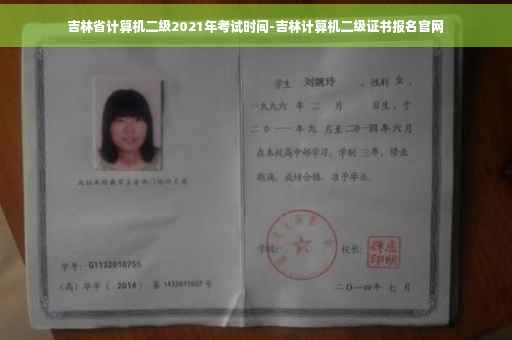 吉林省计算机二级2021年考试时间-吉林计算机二级证书报名官网
学生 刘婉玲 ，性别 女 ，
一九九六 年 二 月 日生，于
二〇一一年 九 月至二〇一四年 六 月
在本校高中部学习，学制 三 年，修业
期满，成绩合格，准予毕业。
学号：G1132010755
学校： 校长：
（高）毕字（ 2014 ）第 1432011607 号
二〇一四年 七 月